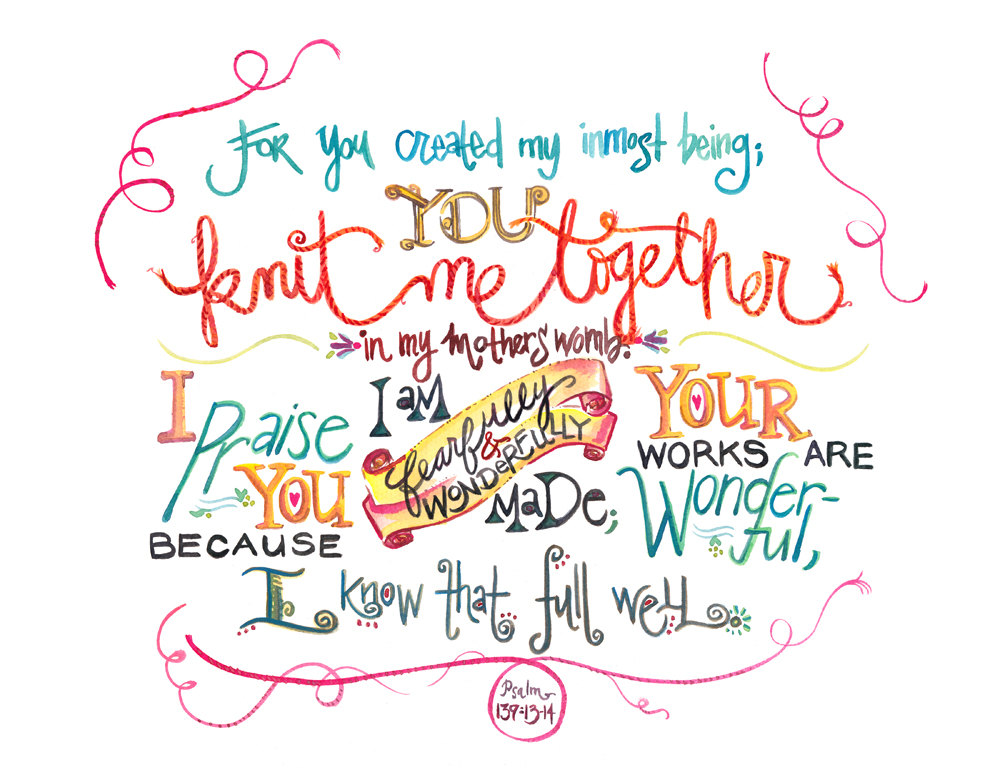 For You created my inmost being;
YOU
knit me together
in my mothers womb.
I Praise YOU
BECAUSE
I AM
fearfully
&
WONDERFULLY
MADE;
YOUR
WORKS ARE
Wonder-
ful,
I know that full well.
Psalm
139:13-14